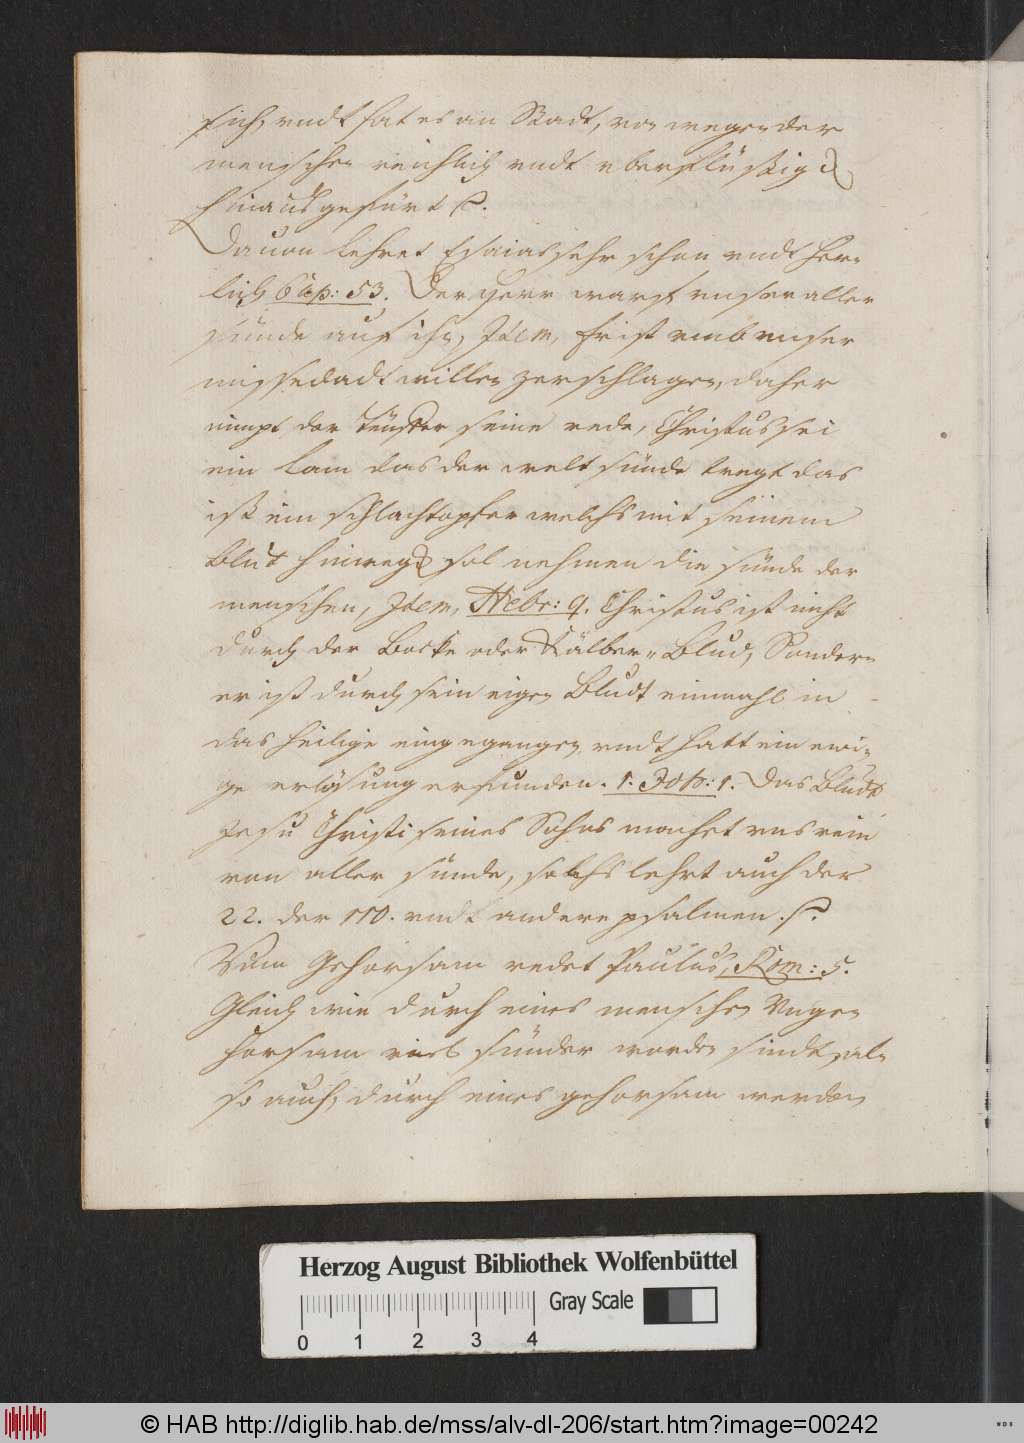 sich, vndt hat es an Stadt, von wegen der
menschen reichlich vndt vberflüßig
hinaus gefürt
Dauon lehret Esaias sehr schon vndt her-
lich Cap: 53. Der Herr warf vnser aller
sunde auf ihn, Item, Er ist vmb vnser
missedadt willen zerschlagen, daher
nimpt der Teuffer seine rede, Christus sei
ein lam das der welt sünde tregt das
ist ein schlachtopfer welchs mit seinem
Blut hinweg sol nehmen die sünde der
menschen, Item, Hebr: 9. Christus ist nicht
durch der Bocke oder Kälber Blud, Sondern
er ist durch sein eigen Bludt einmahl in
das heilige eingegangen vndt hatt ein ewi-
ge erlösung erfunden. 1. Joh: 1. Das Bludt
Jesu Christi seines Sohns machet vns rein
von aller sünde, solchs lehrt auch der
22. der 110. vndt andere psalmen.
Vom Gehorsam redet Paulus, Rom: 5.
Gleich wie durch eines menschen Vnge-
horsam viel sünder worden sindt, al-
so auch, durch eines gehorsam werden
Herzog August Bibliothek Wolfenbüttel
Gray Scale
0 1 2 3 4
© HAB http://diglib.hab.de/mss/alv-dl-206/start.htm?image=00242